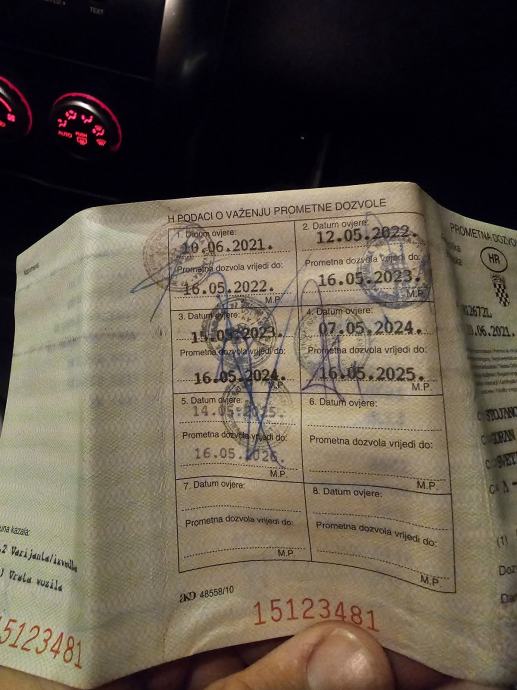 TEXT
AUTO
H PODACI O VAŽENJU PROMETNE DOZVOLE
1. Datum ovjere:
10.06.2021.
Prometna dozvola vrijedi do:
16.05.2022.
M.P.
2. Datum ovjere:
12.05.2022.
Prometna dozvola vrijedi do:
16.05.2023.
M.P.
3. Datum ovjere:
15.05.2023.
Prometna dozvola vrijedi do:
16.05.2024.
M.P.
4. Datum ovjere:
07.05.2024.
Prometna dozvola vrijedi do:
16.05.2025.
M.P.
5. Datum ovjere:
14.05.2025.
Prometna dozvola vrijedi do:
16.05.2026.
M.P.
6. Datum ovjere:
Prometna dozvola vrijedi do:
M.P.
7. Datum ovjere:
Prometna dozvola vrijedi do:
M.P.
8. Datum ovjere:
Prometna dozvola vrijedi do:
M.P.
48558/10
15123481
una kazala:
.2 Varijanta/izvedba
) Vrata vozila
5123481
PROMETNA DOZVO
HR
2672L
.06.2021.
STOJANO
(1)
Doz